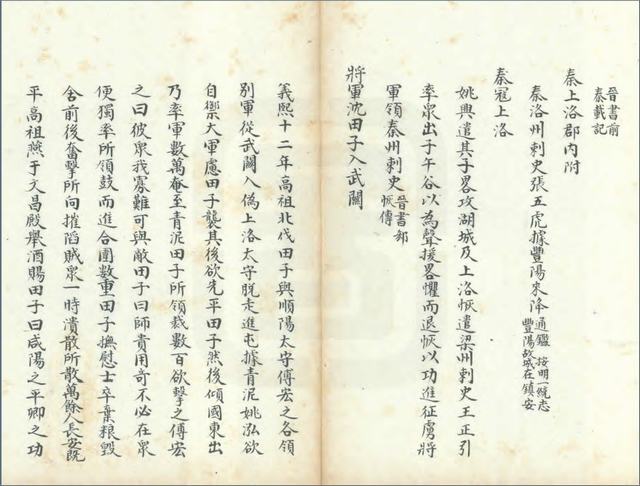 晉書前
秦載記
秦上洛郡內附
秦洛州刺史張五虎據豐陽來降通鑑 按明一統志
豐陽故城在鎮安
秦寇上洛
姚興遣其手畧攻湖城及上洛恢遣梁州刺史王正引
率眾出子午谷以為聲援畧懼而退恢以功進征虜將
軍領秦州刺史晉書郗
恢傳
將軍沈田子入武關
義熙十二年高祖北伐田子與順陽太守傅宏之各領
別軍從武關入偽上洛太守脫走進屯據青泥姚泓欲
自禦大軍慮田子襲其後欲先平田子然後傾國東出
乃率軍數萬奄至青泥田子所領裁數百欲擊之傅宏
之曰彼眾我寡難可與敵田子曰師貴用奇不必在眾
便獨率所領鼓而進合圍數重田子撫慰士卒棄糧毀
舍前後奮擊所向摧蹈賊眾一時潰散所散萬餘人長安既
平高祖燕于文昌殿舉酒賜田子曰咸陽之平卿之功